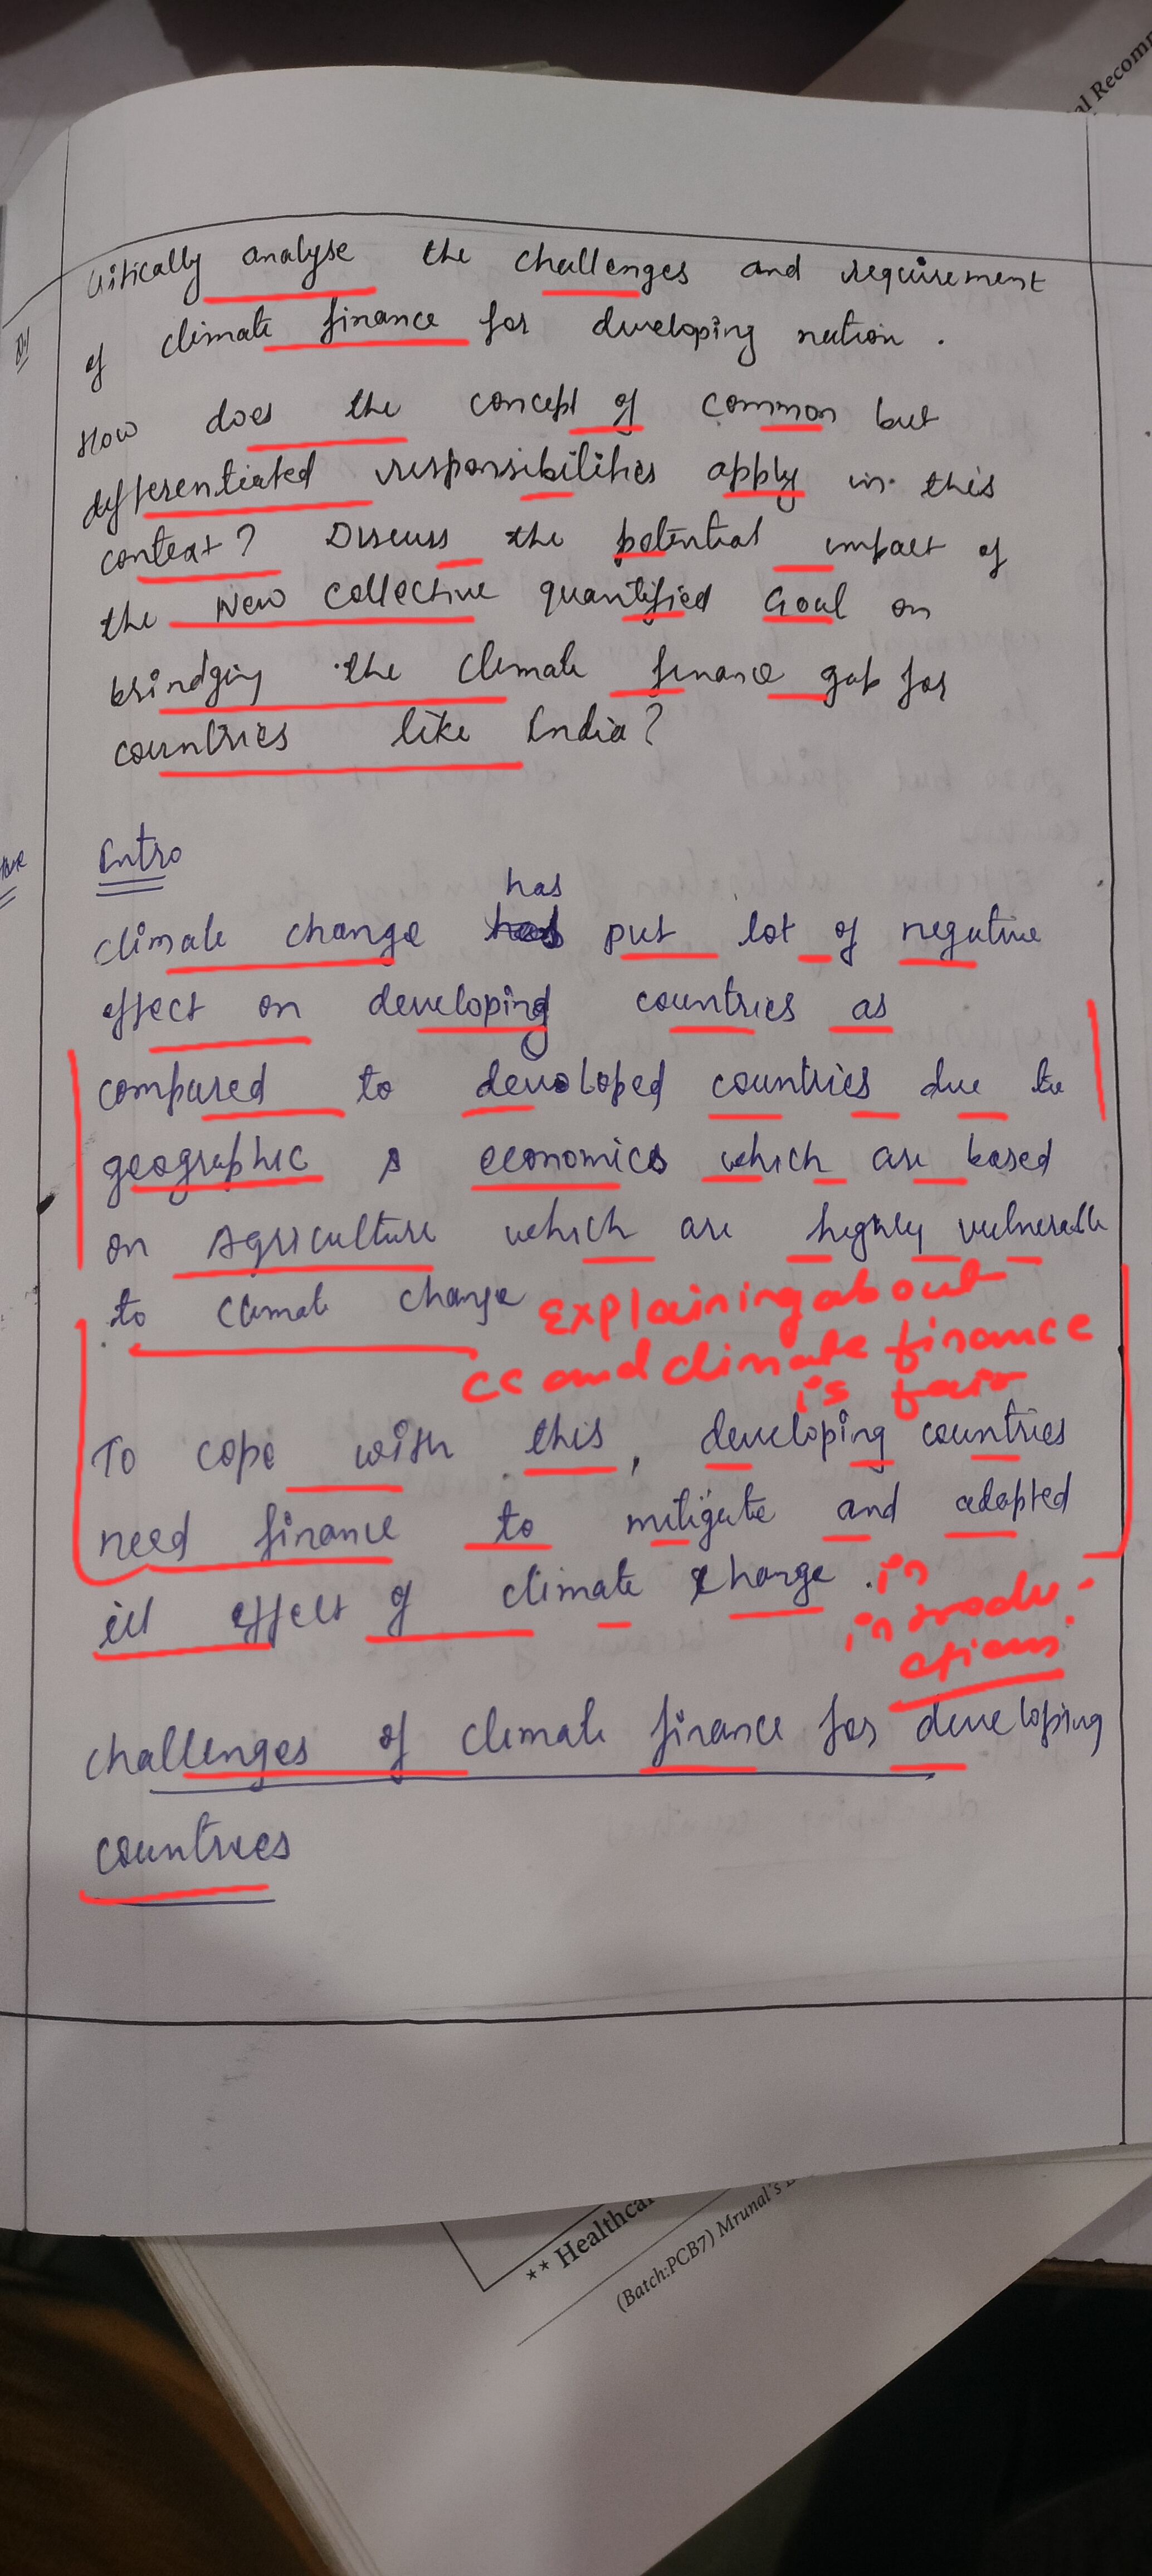 al Recomm
Critically analyse the challenges and requirement
of climate finance for developing nation.
How does the concept of common but
differentiated responsibilities apply in this
context? Discuss the potential impact of
the New collective quantified Goal on
brindging the climate finance gap for
countries like India?
Intro
has
climate change put lot of negative
effect on developing countries as
compared to developed countries due to
geographic & economics which are based
on Agriculture which are highly vulnerable
to climate change
Explaining about
cc and climate finance
is fair
To cope with this, developing countries
need finance to mitigate and adopted
ill effect of climate change.
in
introdu-
ctions.
challenges of climate finance for developing
countries
** Healthcar
(Batch:PCB7) Mrunal's